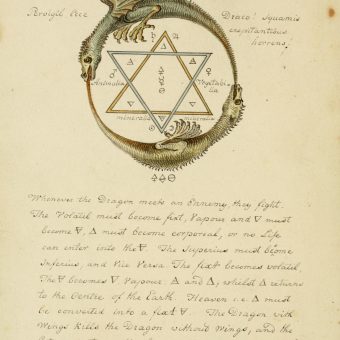 Pervigil Ecce
Draco! Squamis
crepitantibus
horrens.
Animalia
Vegetabi-
lia
mineralia
mineralia
Whenever the Dragon meets an Ennemy, they fight.
The Volatil must become fixt, Vapour and 🜄 must
become 🜃, 🜂 must become corporeal, or no Life
can enter into the 🜃. The Superius must become
Inferius, and Vice Versa. The fixt becomes volatil,
The 🜃 becomes 🜄, Vapour, 🜁 and 🜂, whilst 🜂 returns
to the Centre of the Earth. Heaven i.e. 🜂 must
be converted into a fixt 🜃. The Dragon with
Wings kills the Dragon without Wings, and the